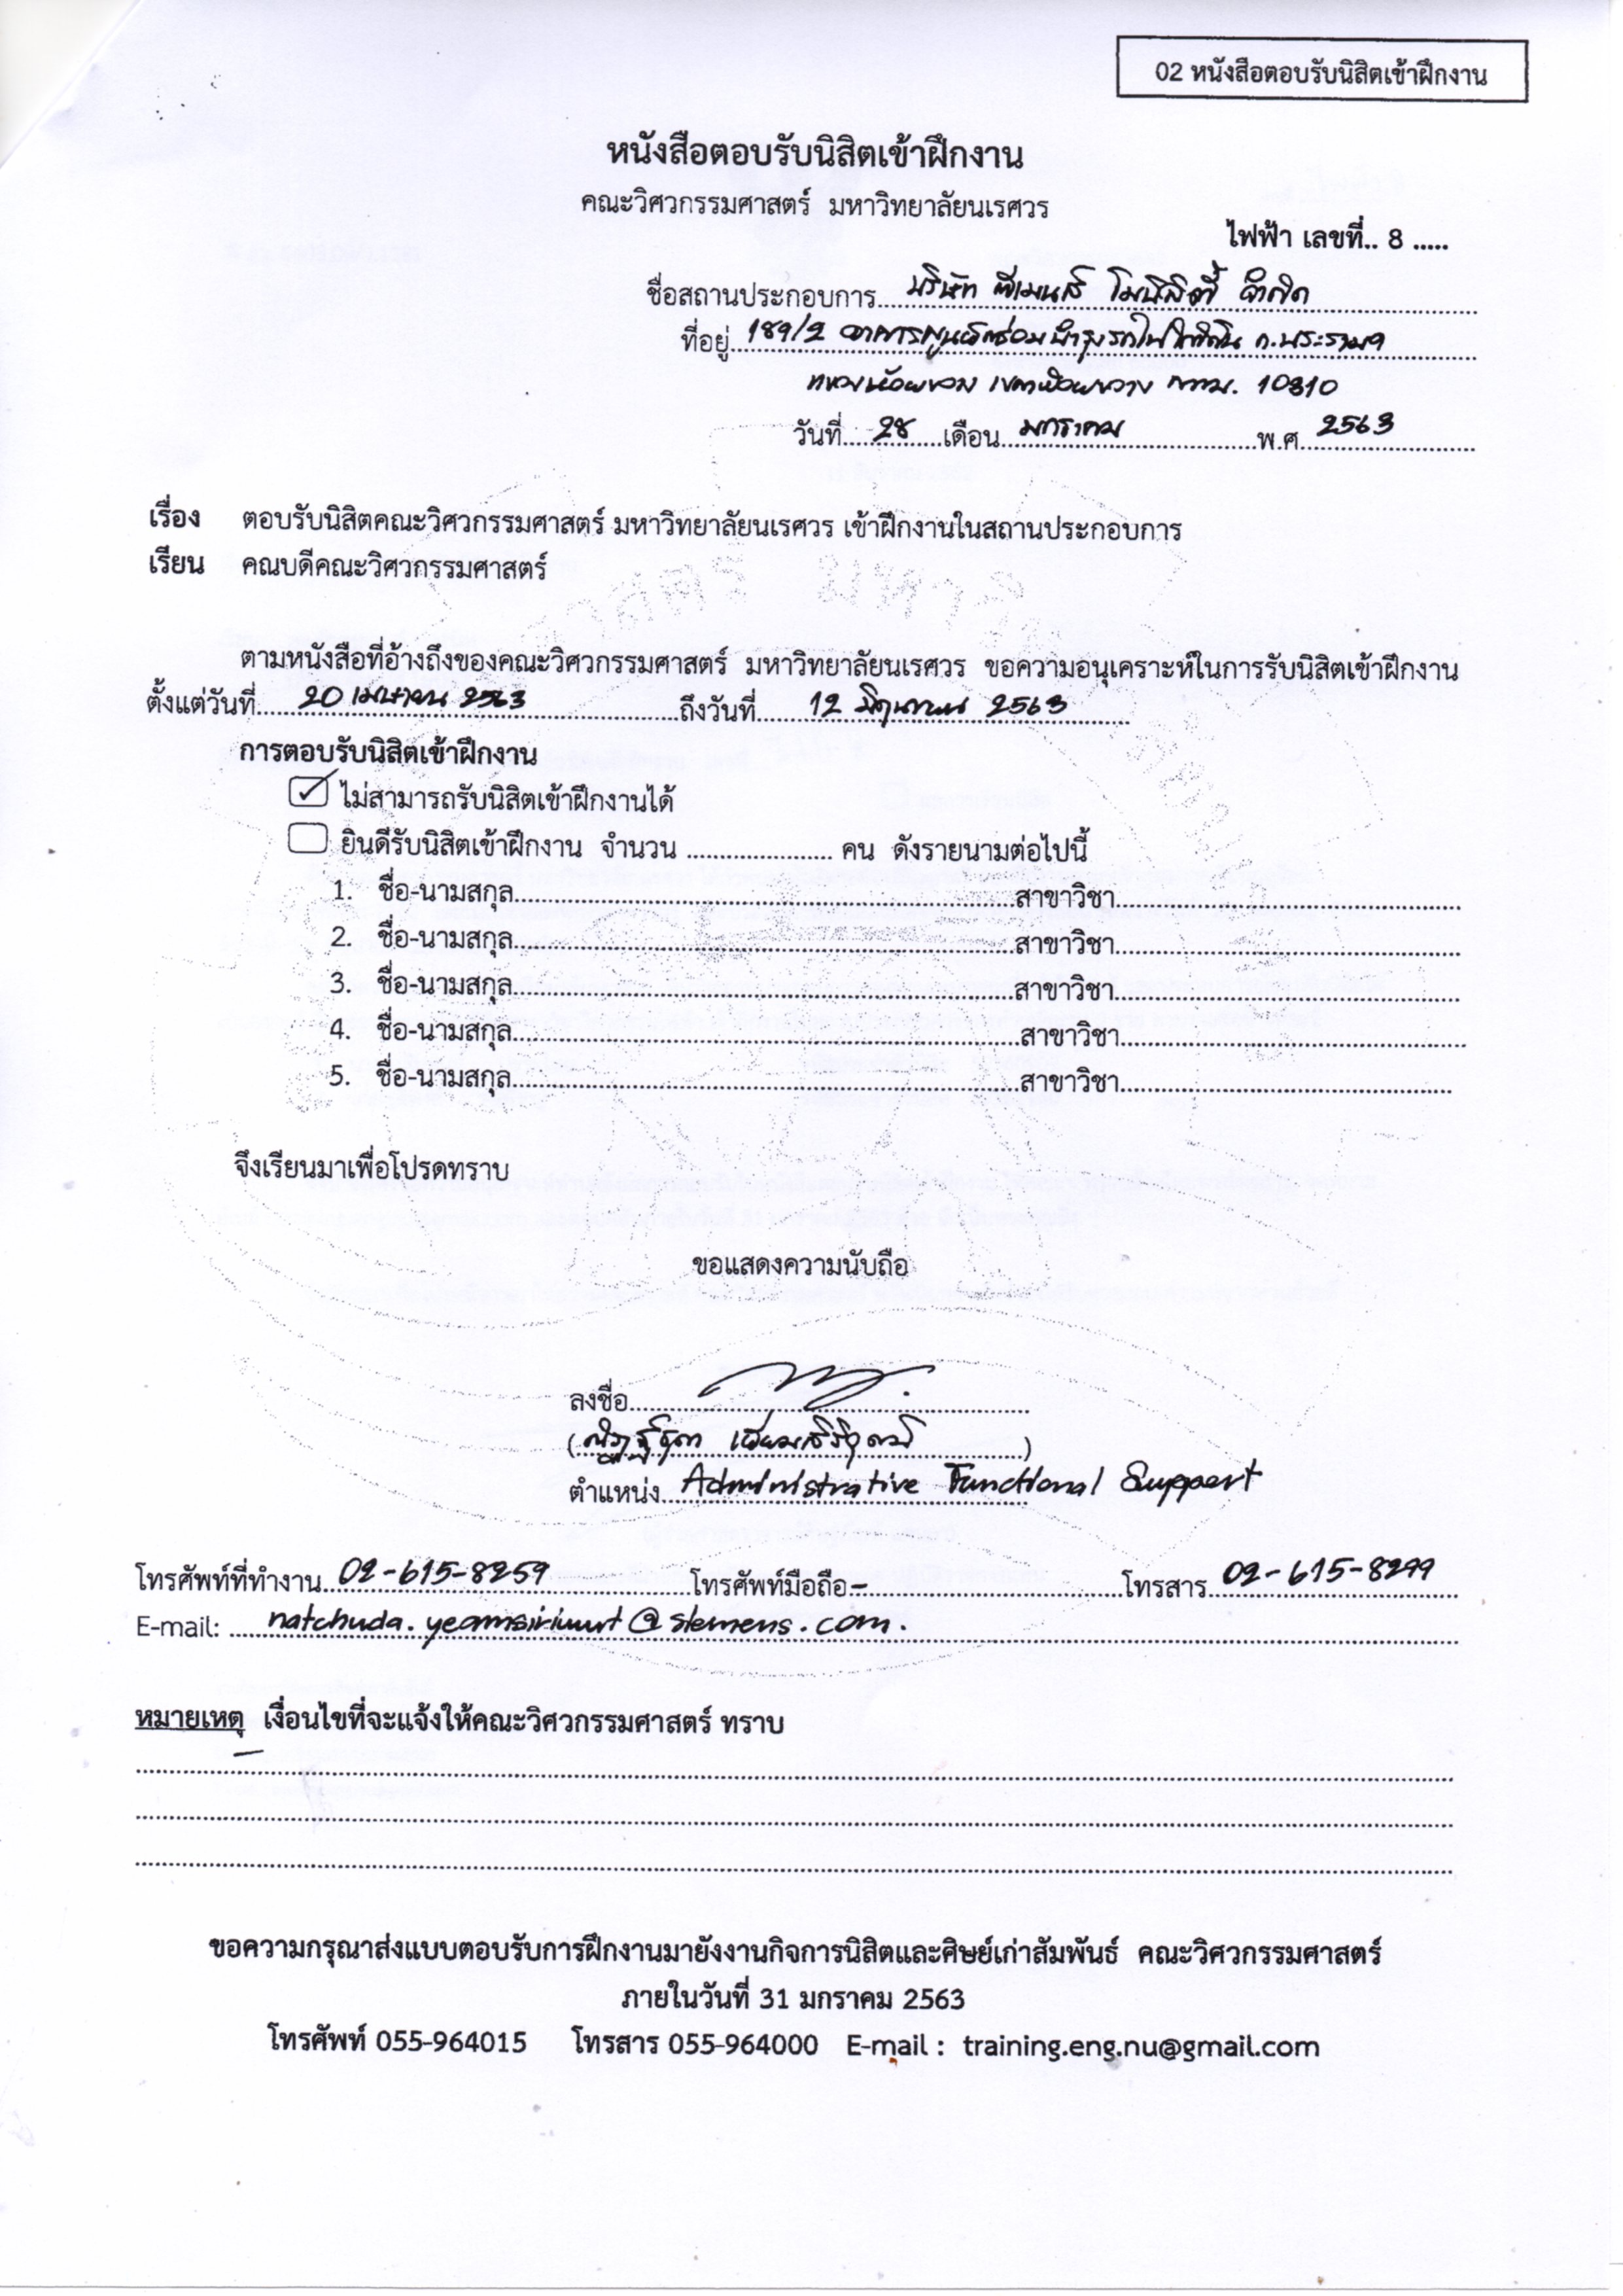 02 หนังสือตอบรับนิสิตเข้าฝึกงาน
หนังสือตอบรับนิสิตเข้าฝึกงาน
คณะวิศวกรรมศาสตร์ มหาวิทยาลัยนเรศวร
ไฟฟ้า เลขที่.. 8 .....
ชื่อสถานประกอบการ....บริษัท ซีเมนส์ โมบิลิตี้ จำกัด
ที่อยู่..189/2 อาคารศูนย์ซ่อมบำรุงรถไฟใต้ดิน ถ.พระราม9
แขวงห้วยขวาง เขตห้วยขวาง กทม. 10310
วันที่....28....เดือน...มกราคม....พ.ศ...2563
เรื่อง ตอบรับนิสิตคณะวิศวกรรมศาสตร์ มหาวิทยาลัยนเรศวร เข้าฝึกงานในสถานประกอบการ
เรียน คณบดีคณะวิศวกรรมศาสตร์
ศาสตร์ มหาวิ
ตามหนังสือที่อ้างถึงของคณะวิศวกรรมศาสตร์ มหาวิทยาลัยนเรศวร ขอความอนุเคราะห์ในการรับนิสิตเข้าฝึกงาน
ตั้งแต่วันที่....20 เมษายน 2563....ถึงวันที่....12 มิถุนายน 2563....
การตอบรับนิสิตเข้าฝึกงาน
✓ ไม่สามารถรับนิสิตเข้าฝึกงานได้
ยินดีรับนิสิตเข้าฝึกงาน จำนวน ..................... คน ดังรายนามต่อไปนี้
1. ชื่อ-นามสกุล....................สาขาวิชา....................
2. ชื่อ-นามสกุล....................สาขาวิชา....................
3. ชื่อ-นามสกุล....................สาขาวิชา....................
4. ชื่อ-นามสกุล....................สาขาวิชา....................
5. ชื่อ-นามสกุล....................สาขาวิชา....................
จึงเรียนมาเพื่อโปรดทราบ
ขอแสดงความนับถือ
ลงชื่อ....................
(ณัฏฐ์ชุดา )
ตำแหน่ง..Administrative Functional Support
โทรศัพท์ที่ทำงาน..02-615-8259....โทรศัพท์มือถือ.-....โทรสาร..02-615-8299
E-mail: ....natchuda.yeamsiriwut@siemens.com.
หมายเหตุ เงื่อนไขที่จะแจ้งให้คณะวิศวกรรมศาสตร์ ทราบ
-
ขอความกรุณาส่งแบบตอบรับการฝึกงานมายังงานกิจการนิสิตและศิษย์เก่าสัมพันธ์ คณะวิศวกรรมศาสตร์
ภายในวันที่ 31 มกราคม 2563
โทรศัพท์ 055-964015 โทรสาร 055-964000 E-mail : training.eng.nu@gmail.com